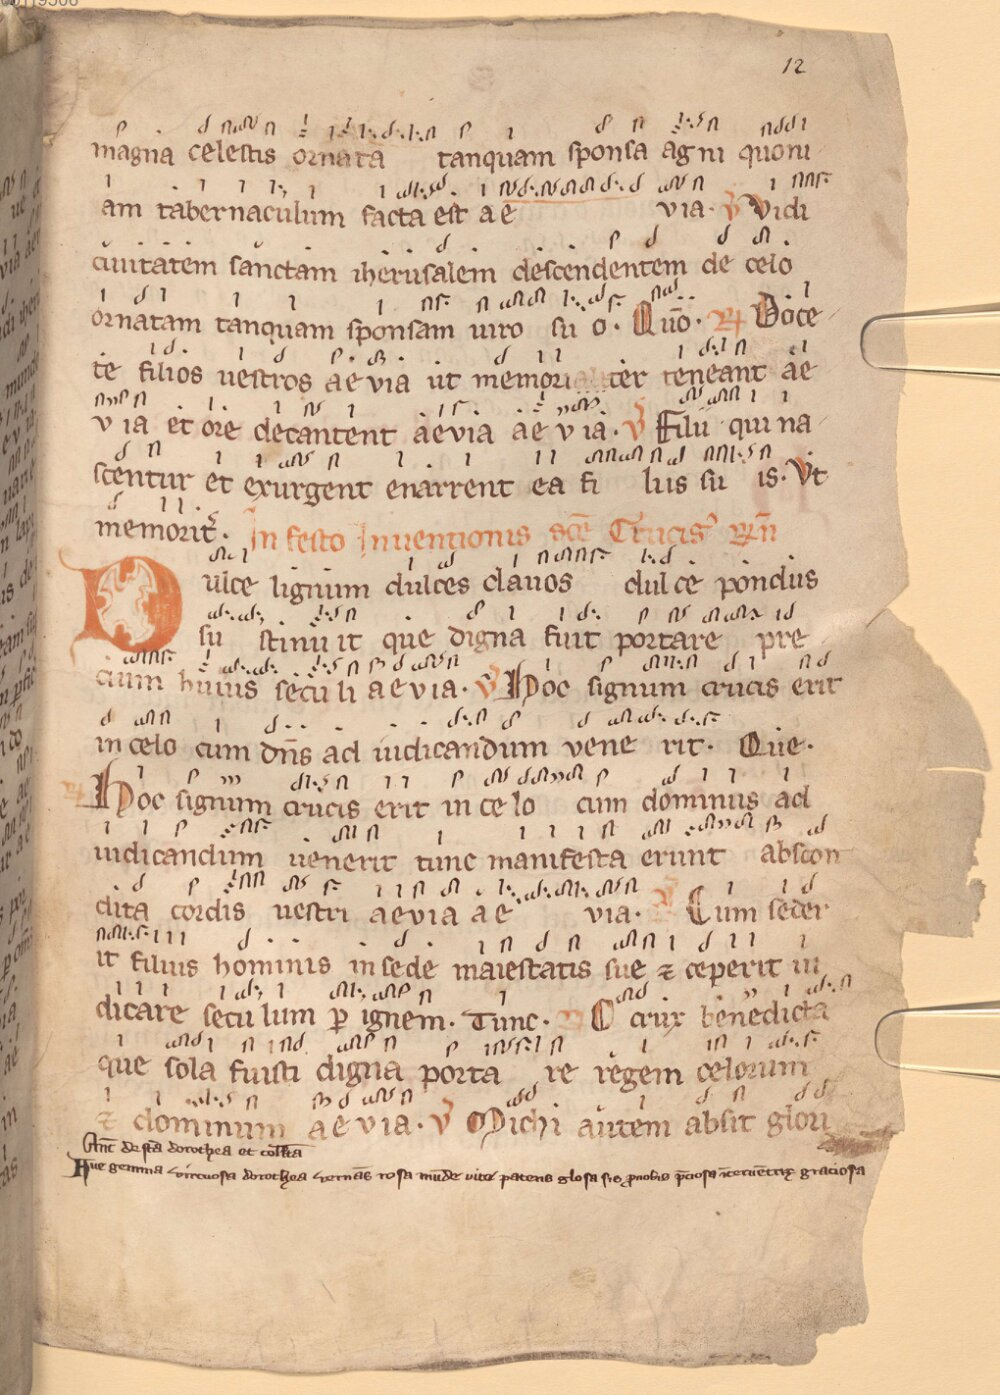 12
magna celestis ornata tanquam sponsa agni quoni
am tabernaculum facta est ae via. V Vidi
ciuitatem sanctam iherusalem descendentem de celo
ornatam tanquam sponsam uiro su o. Quō. R Doce
te filios uestros aevia ut memori ter teneant ae
via et ore decantent aevia aevia. V Filii qui na
scentur et exurgent enarrent ea fi liis su is. Vt
memorit. In festo Inuentionis scē Crucis R
Dulce lignum dulces clauos dulce pondus
su stinuit que digna fuit portare pre
cium huius seculi aevia. V Hoc signum crucis erit
in celo cum dn̄s ad iudicandum vene rit. Que.
R Hoc signum crucis erit in celo cum dominus ad
iudicandum uenerit tunc manifesta erunt abscon
dita cordis uestri aevia ae via. V Cum seder
it filius hominis in sede maiestatis sue ⁊ ceperit iu
dicare seculum p̱ ignem. Tunc. R O crux benedicta
que sola fuisti digna porta re regem celorum
⁊ dominum aevia. V Michi autem absit glori
Anc̄ de sta dorothea et coll̄ta
Aue gemma virtuosa dorothea vernās rosa patens glosa graciosa